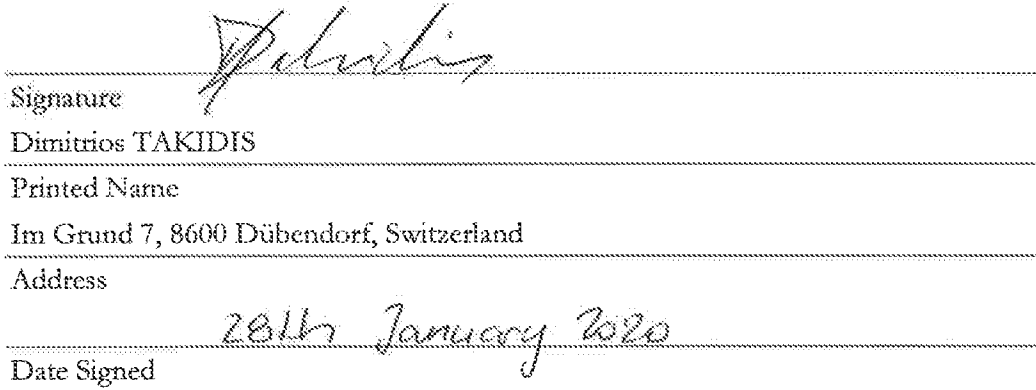 Signature
Dimitrios TAKIDIS
Printed Name
Im Grund 7, 8600 Dübendorf, Switzerland
Address
28th January 2020
Date Signed